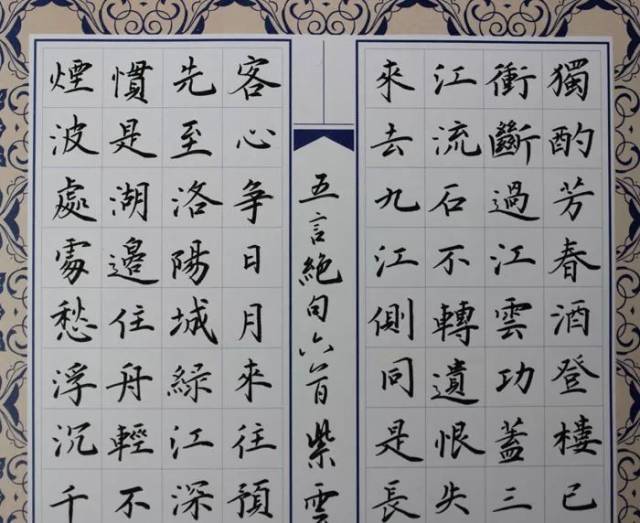 獨酌芳春酒登樓已
衝斷過江雲功蓋三
江流石不轉遺恨失
來去九江側同是長
五言絕句六首紫雲
客心争日月來往預
先至洛陽城綠江深
慣是湖邊住舟輕不
煙波處處愁浮沉千